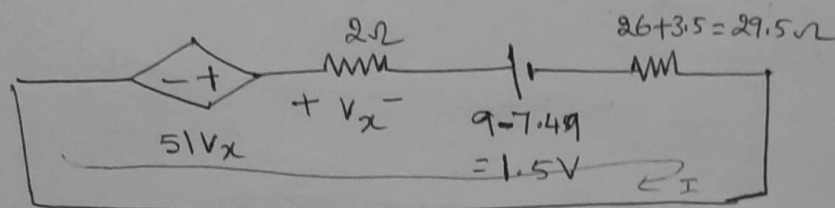 2Ω
26+3.5=29.5Ω
- +
+ Vx -
51Vx
9-7.49
=1.5V
I